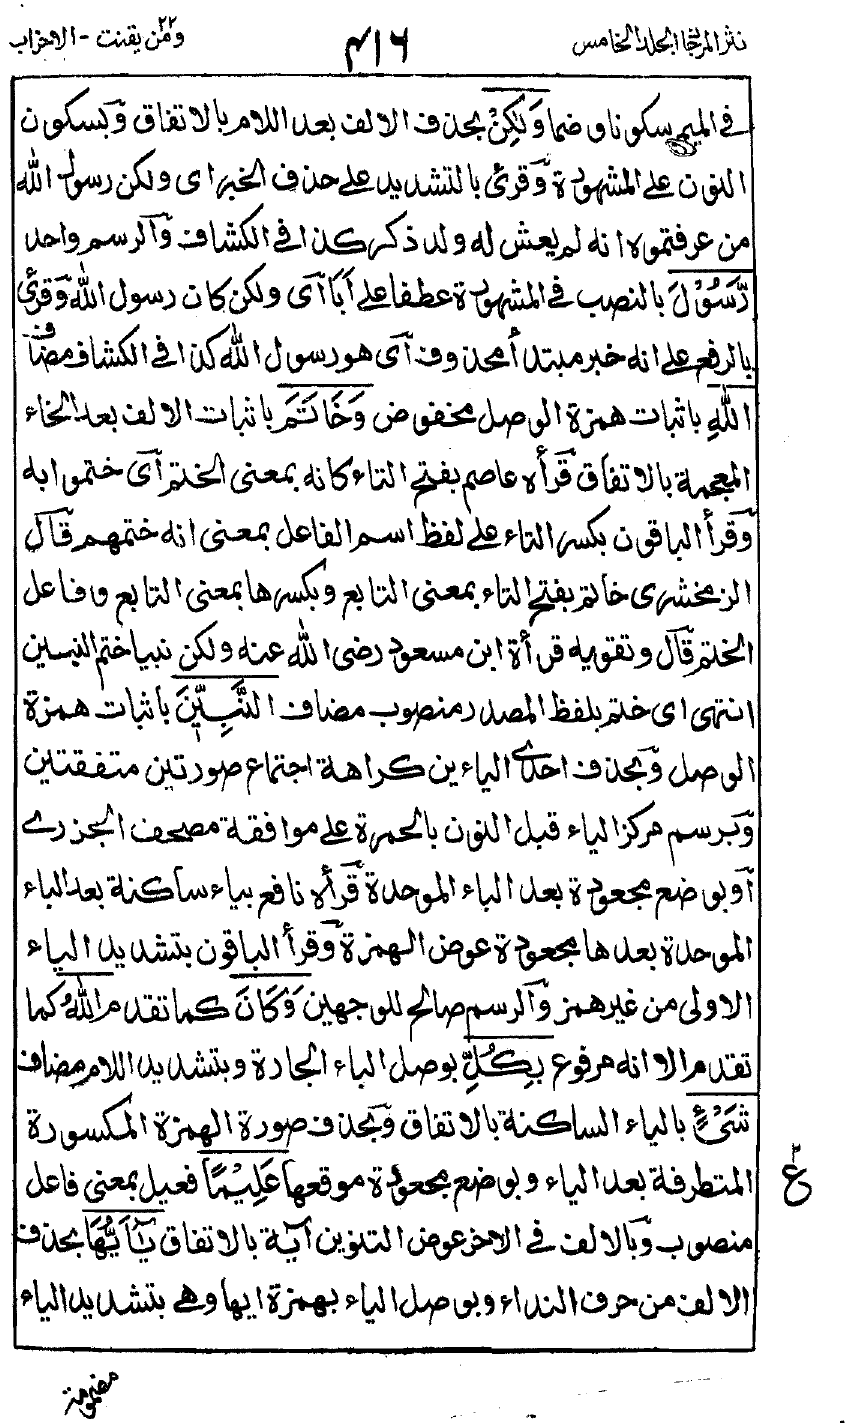 نثر المرجان المجلد الخامس
٤١٦
ومن يقنت ٢٢ - الاحزاب
في الميم سكونا وضما وَلٰكِنْ بحذف الالف بعد اللام بالاتفاق وبسكون
النون على المشهورة وقرئ بالتشديد على حذف الخبر اى ولكن رسول الله
من عرفتموه انه لم يعش له ولد ذكر كذا في الكشاف والرسم واحد
رَّسُوْلَ بالنصب في المشهورة عطفا على اَبَا اى ولكن كان رسول الله وقرئ
بالرفع على انه خبر مبتدأ محذوف اى هو رسول الله كذا في الكشاف مضاف
اللّٰهِ باثبات همزة الوصل مخفوض وَخَاتَمَ باثبات الالف بعد الخاء
المعجمة بالاتفاق قرأه عاصم بفتح التاء كانه بمعنى الختم اى ختموا به
وقرأ الباقون بكسر التاء على لفظ اسم الفاعل بمعنى انه ختمهم قال
الزمخشرى خاتم بفتح التاء بمعنى التابع وبكسرها بمعنى التابع وفاعل
الختم قال وتقويه قرأة ابن مسعود رضى الله عنه ولكن نبيا ختم النبين
انتهى اى ختم بلفظ المصدر منصوب مضاف النَّبِيّٖنَ باثبات همزة
الوصل وبحذف احدى الياءين كراهة اجتماع صورتين متفقتين
وبرسم مركز الياء قبل النون بالحمرة على موافقة مصحف الجزرے
او بوضع مجعودة بعد الباء الموحدة قرأه نافع بياء ساكنة بعد الباء
الموحدة بعدها مجعودة عوض الهمزة وقرأ الباقون بتشديد الياء
الاولى من غير همز والرسم صالح للوجهين وَكَانَ كما تقدم اللّٰهُ كما
تقدم الا انه مرفوع بِكُلِّ بوصل الباء الجارة وبتشديد اللام مضاف
شَيْءٍ بالياء الساكنة بالاتفاق وبحذف صورة الهمزة المكسورة
المتطرفة بعد الياء وبوضع مجعودة موقعها عَلِيْمًا فعيل بمعنى فاعل
منصوب وبالالف في الاخر عوض التنوين اٰية بالاتفاق يٰٓاَيُّهَا بحذف
الالف من حرف النداء وبوصل الياء بهمزة ايها وهے بتشديد الياء
ع ٢
مضمومة